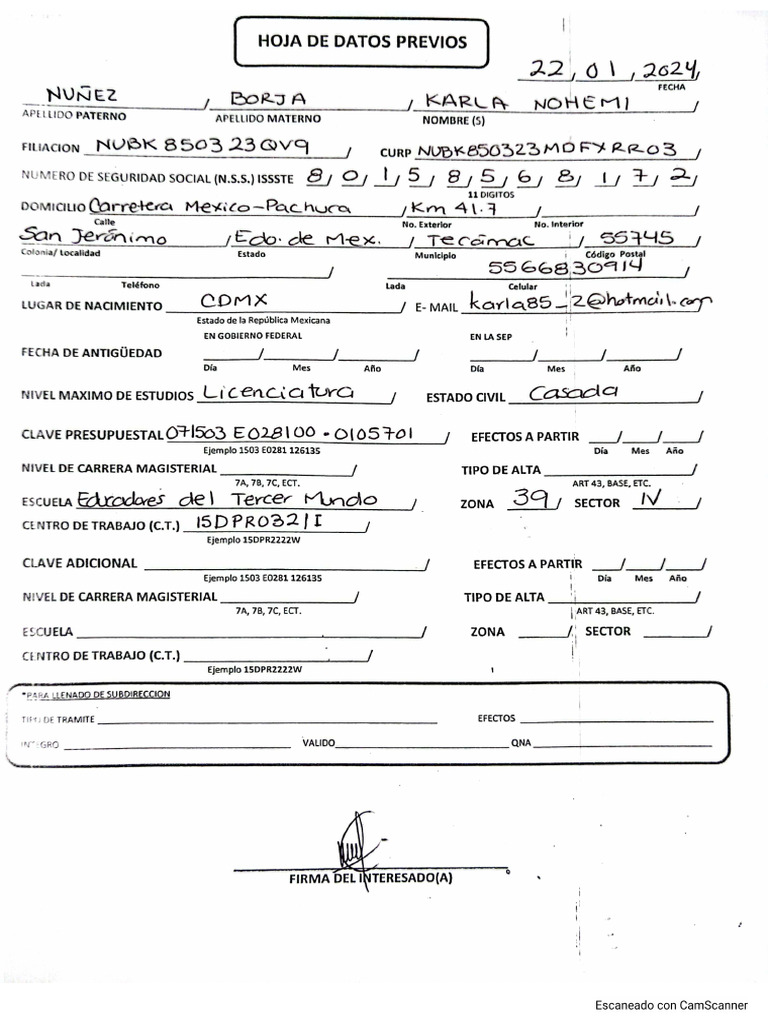 HOJA DE DATOS PREVIOS
22, 01, 2024,
FECHA
NUÑEZ / BORJA / KARLA NOHEMI /
APELLIDO PATERNO APELLIDO MATERNO NOMBRE (S)
FILIACION NUBK 850323QV9 / CURP NUBK850323MDFXRR03 /
NUMERO DE SEGURIDAD SOCIAL (N.S.S.) ISSSTE 8/ 0/ 1/ 5/ 8/ 5/ 6/ 8/ 1/ 7/ 2/
11 DIGITOS
DOMICILIO Carretera Mexico-Pachuca /Km 41.7 / /
Calle No. Exterior No. Interior
San Jerónimo /Edo. de Mex. / Tecámac / 55745 /
Colonia/ Localidad Estado Municipio Código Postal
/ 5566830914 /
Lada Teléfono Lada Celular
LUGAR DE NACIMIENTO CDMX / E- MAIL karla85_2@hotmail.com
Estado de la República Mexicana
EN GOBIERNO FEDERAL EN LA SEP
FECHA DE ANTIGÜEDAD / / / / / /
Día Mes Año Día Mes Año
NIVEL MAXIMO DE ESTUDIOS Licenciatura / ESTADO CIVIL Casada /
CLAVE PRESUPUESTAL 071503 E028100 - 0105701 / EFECTOS A PARTIR / / /
Ejemplo 1503 E0281 126135 Día Mes Año
NIVEL DE CARRERA MAGISTERIAL / TIPO DE ALTA /
7A, 7B, 7C, ECT. ART 43, BASE, ETC.
ESCUELA Educadores del Tercer Mundo / ZONA 39 / SECTOR IV /
CENTRO DE TRABAJO (C.T.) 15DPR0321I /
Ejemplo 15DPR2222W
CLAVE ADICIONAL / EFECTOS A PARTIR / / /
Ejemplo 1503 E0281 126135 Día Mes Año
NIVEL DE CARRERA MAGISTERIAL / TIPO DE ALTA /
7A, 7B, 7C, ECT. ART 43, BASE, ETC.
ESCUELA / ZONA / SECTOR /
CENTRO DE TRABAJO (C.T.) /
Ejemplo 15DPR2222W
*PARA LLENADO DE SUBDIRECCION
TIPO DE TRAMITE EFECTOS
INTEGRO VALIDO QNA
FIRMA DEL INTERESADO(A)
Escaneado con CamScanner